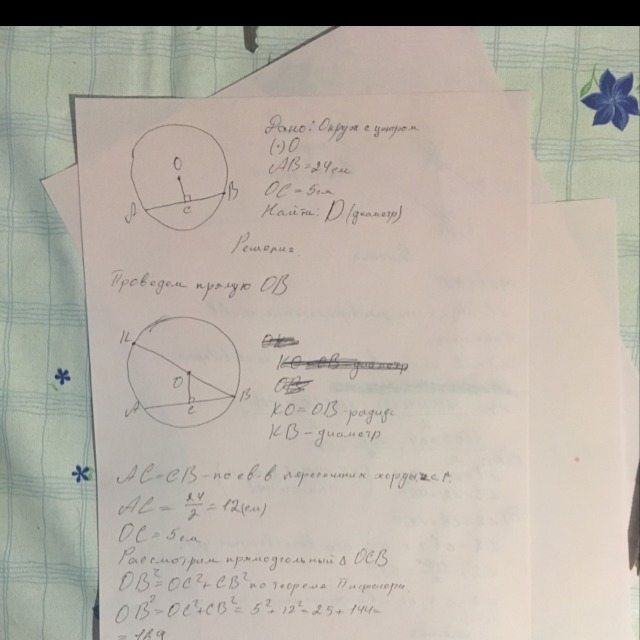 Дано: Окруж с центром
(·) O
AB = 24 см
OC = 5 см
Найти: D (диаметр)
O
A
C
B
Решение
Проведем прямую OB
K
O
A
C
B
KO = OB - радиус
KB - диаметр
AC = CB - по св-в пересечения хорды
AC = 24/2 = 12 (см)
OC = 5 см
Рассмотрим прямоугольный Δ OCB
OB² = OC² + CB² по теореме Пифагора
OB² = OC² + CB² = 5² + 12² = 25 + 144 =
= 169